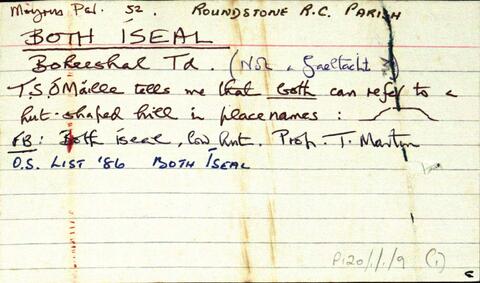 Moyrus Par. 52. ROUNDSTONE R.C. PARISH
BOTH ÍSEAL
Boheeshal Td. (Not a Gaeltacht)
T.S. Ó Máille tells me that both can refer to a
hut-shaped hill in placenames :
FB: Both íseal, low hut. Prop. T. Martin
O.S. LIST '86 BOTH ÍSEAL
P120/1/1/9 (1)